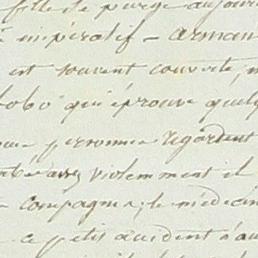 fille se purge aujour
impératif - arman
est souvent couverte, m
bobo" qu'éprouve quelq
personnes regardent
assez violemment il
compagnie; le médecin
ce petit accident n'au